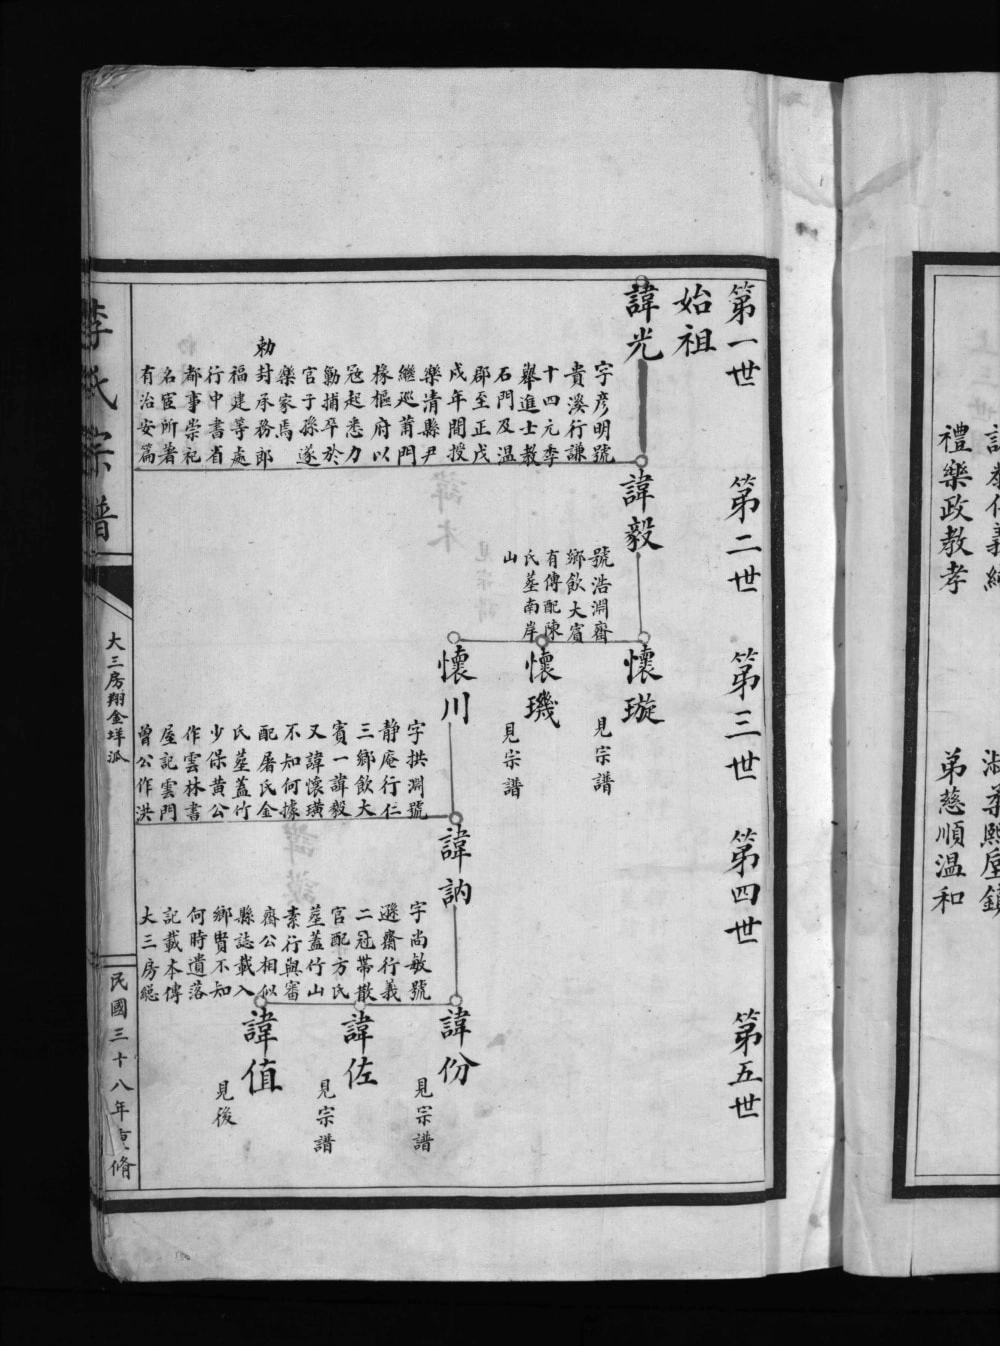 禮樂政教孝
弟慈順温和
第一世
始祖
諱光
字彦明號
貴溪行謙
十四元季
舉進士教
石門及温
郡至正戊
戌年間授
樂清縣尹
繼巡莆門
椽樞府以
冦起悉力
勦捕卒於
官于孫遂
樂家焉
勅封承務郎
福建等處
行中書省
都事崇祀
名宦所著
有治安篇
第二世
諱毅
號浩淵齋
鄉飲大賓
有傳配陳
氏塟南岸
山
第三世
懷璇
見宗譜
懷璣
見宗譜
懷川
字拱淵號
静庵行仁
三鄉飲大
賓一諱毅
又諱懷璜
不知何據
配屠氏金
氏塟蓋竹
少保黄公
作雲林書
屋記雲門
曾公作洪
第四世
諱訥
字尚敏號
遯齋行義
二冠帯散
官配方氏
塟蓋竹山
素行與審
齋公相似
縣誌載入
鄉賢不知
何時遺落
記載本傳
大三房縂
第五世
諱份
見宗譜
諱佐
見宗譜
諱值
見後
李氏宗譜
大三房翔金垟派
民國三十八年重脩